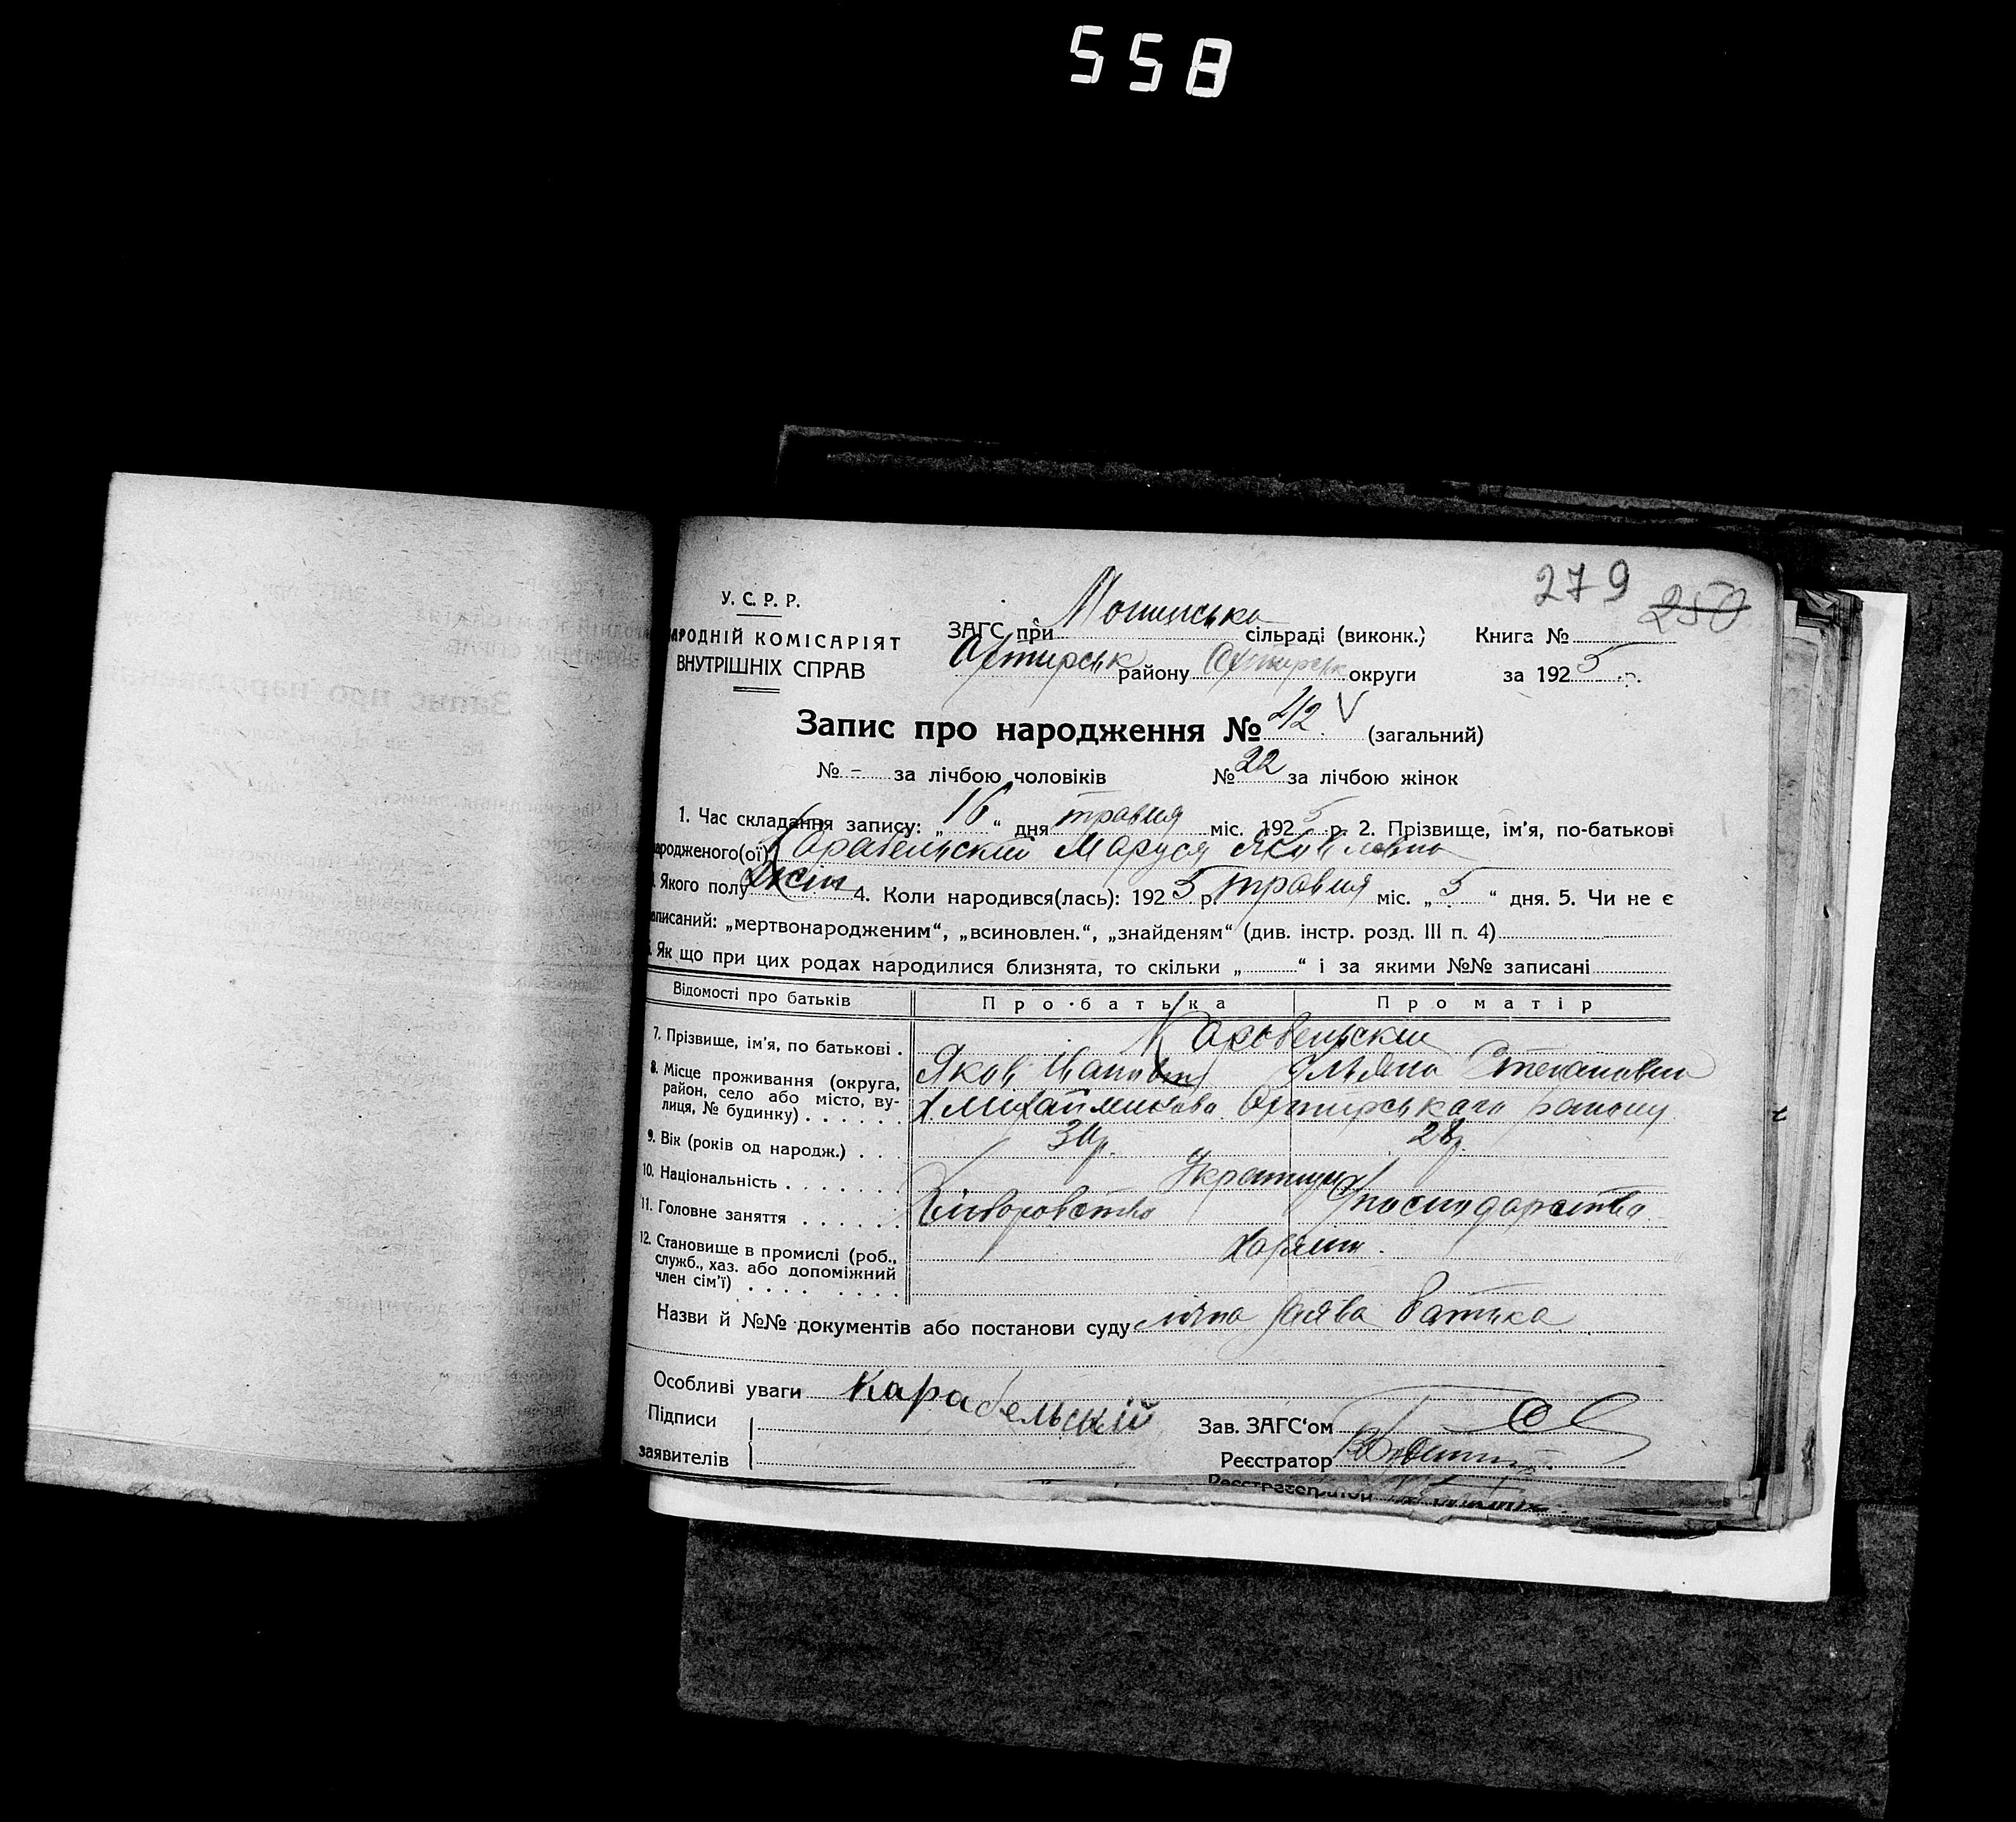 558
279 250
У. С. Р. Р.
АРОДНІЙ КОМІСАРІЯТ
ВНУТРІШНІХ СПРАВ
ЗАГС при сільраді (виконк.) Книга №
Охтирськ району Охтирськ округи за 1925 р.
Запис про народження № 42 V (загальний)
№ - за лічбою чоловіків № 22 за лічбою жінок
1. Час складання запису: „16“ дня травня міс. 1925 р. 2. Прізвище, ім'я, по-батькові
ародженого(ої) Карабельскій Маруся Яковлевна
Якого полу жін 4. Коли народився(лась): 1925 р. травня міс. „5“ дня. 5. Чи не є
аписаний: „мертвонародженим“, „всиновлен.“, „знайденям“ (див. інстр. розд. III п. 4)
Як що при цих родах народилися близнята, то скільки „ “ і за якими №№ записані
Відомості про батьків Про батька Про матір
7. Прізвище, ім'я, по батькові . Карабельскій
Яков Иванович Степановна
8. Місце проживання (округа, район, село або місто, вулиця, № будинку) . . . . . . х. Охтирського району
9. Вік (років од народж.) . . . 30 р. 28 р.
10. Національність . . . . . . . Українці
11. Головне заняття . . . . . Хліборобство господарство
12. Становище в промислі (роб., служб., хаз. або допоміжний член сім'ї) . . . . . . . . хазяїни.
Назви й №№ документів або постанови суду лічна заява батька
Особливі уваги
Підписи заявителів Карабельскій
Зав. ЗАГС'ом
Реєстратор